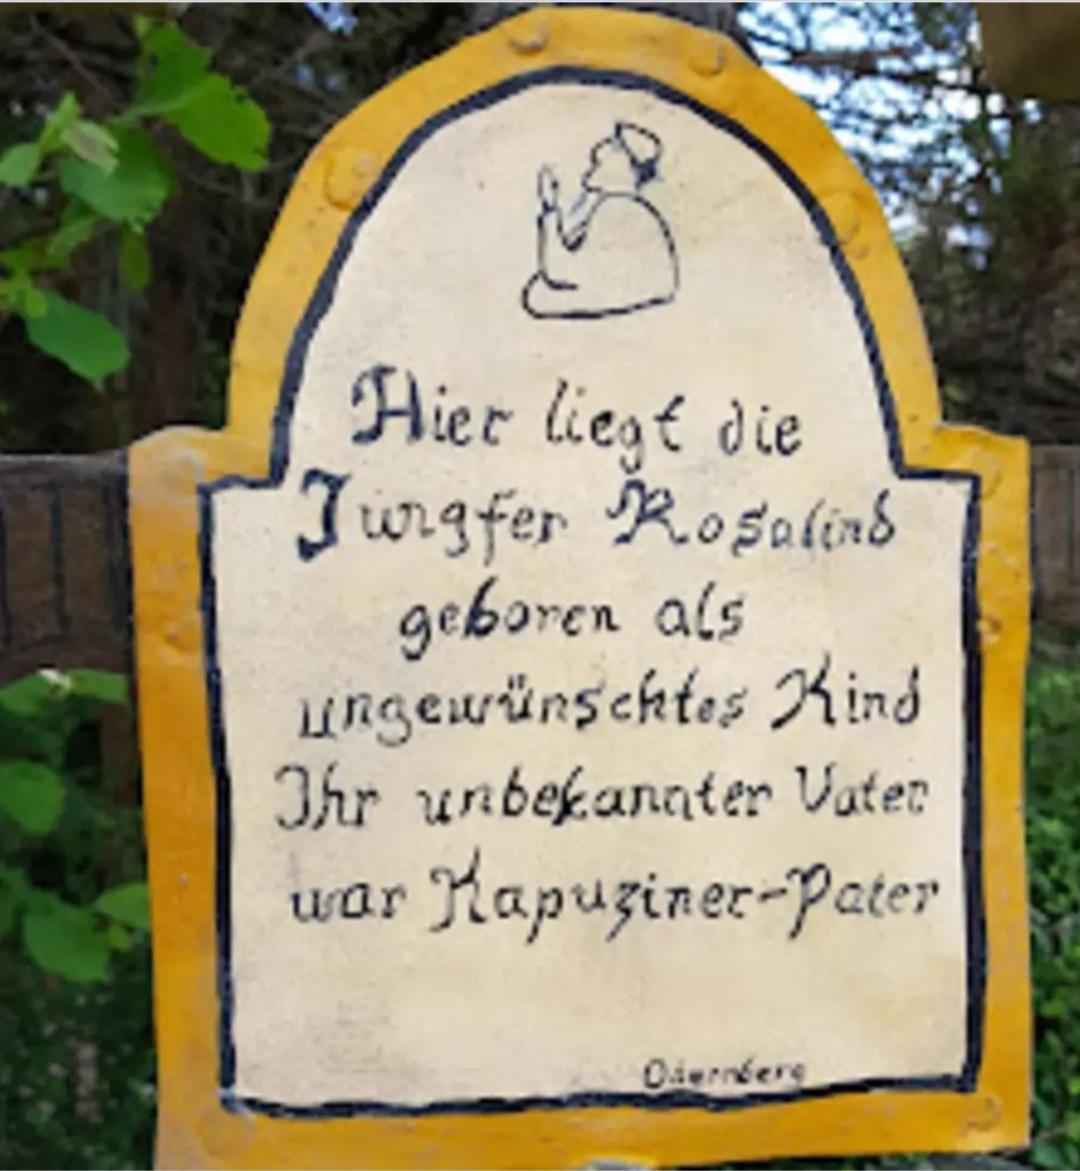 Hier liegt die
Jungfer Rosalind
geboren als
ungewünschtes Kind
Ihr unbekannter Vater
war Kapuziner-Pater